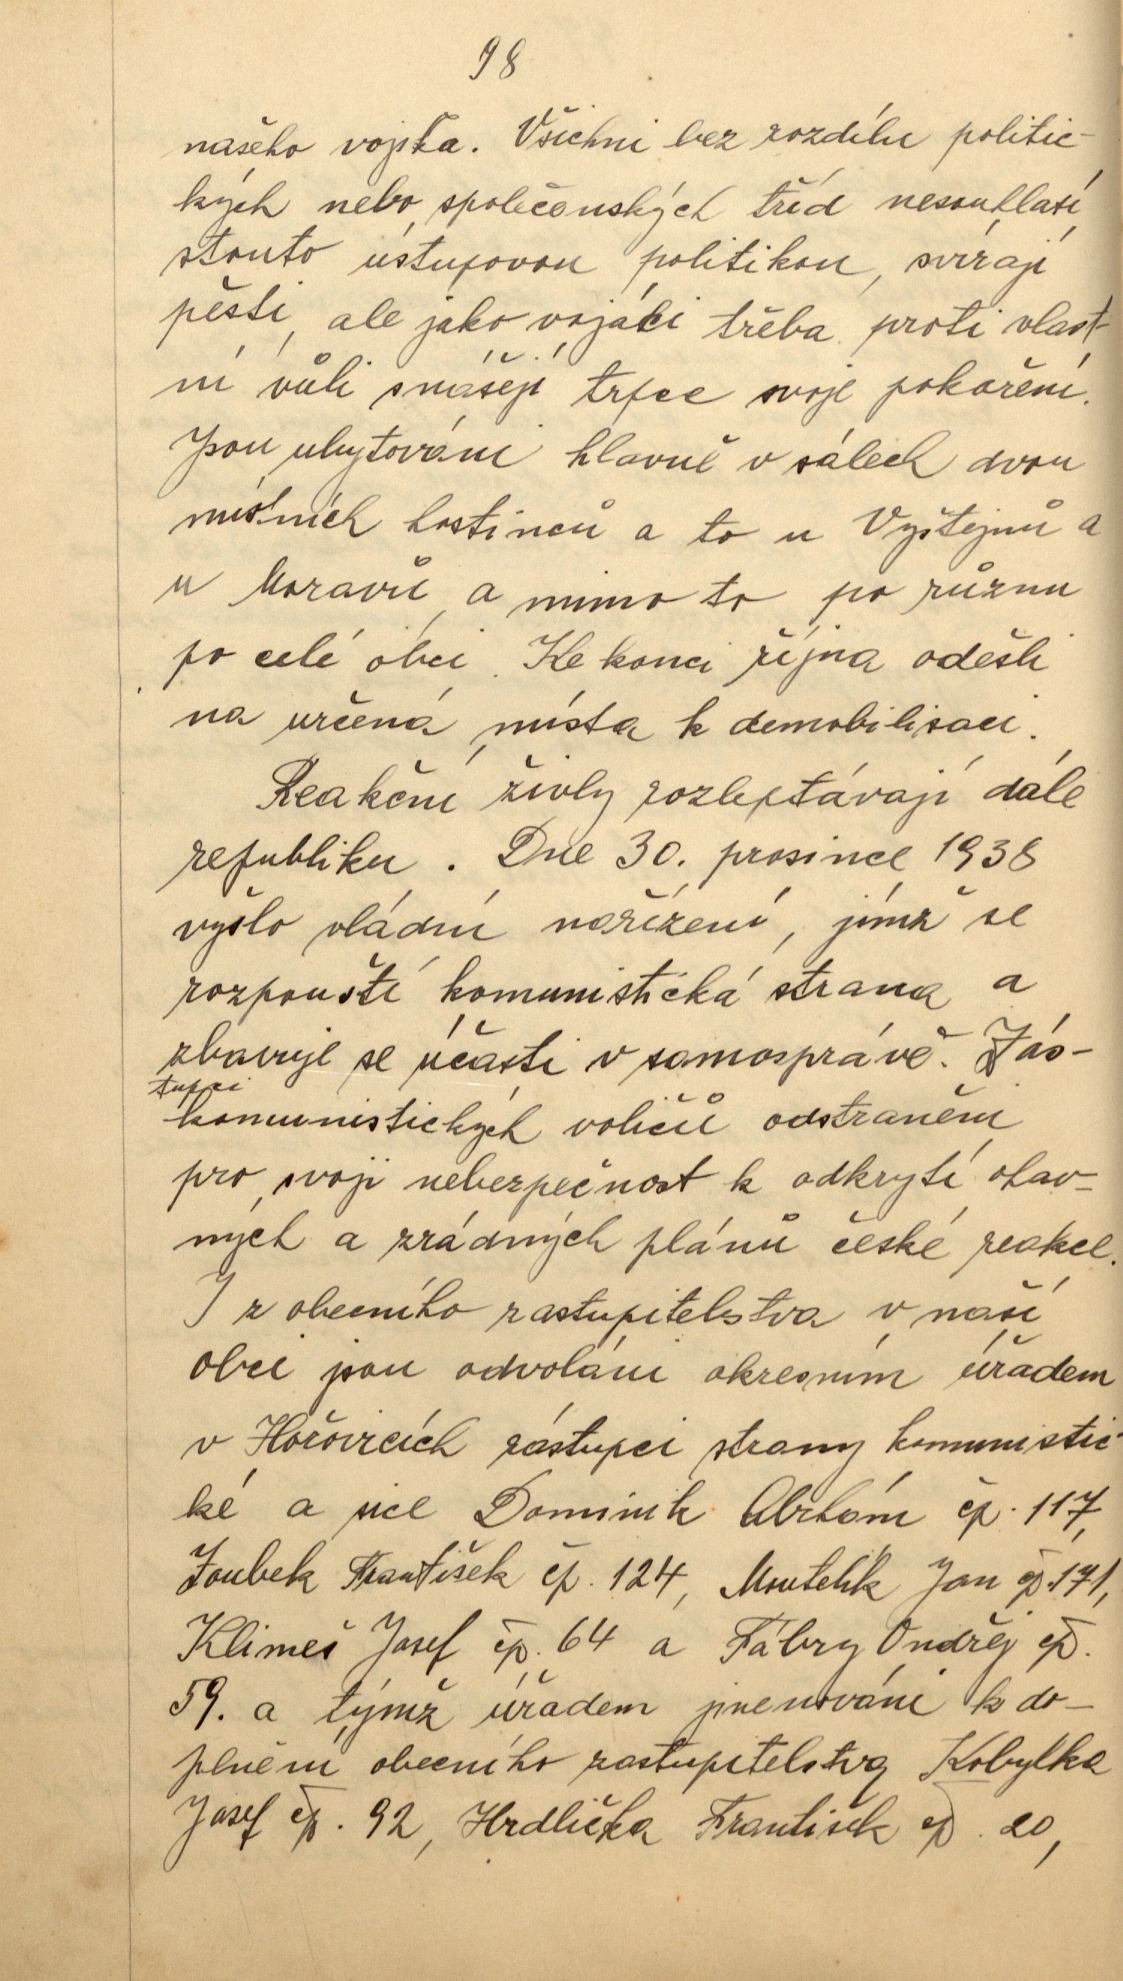 98
našeho vojska. Všichni bez rozdílu politic-
kých nebo společenských tříd nesouhlasí
stouto ústupovou politikou, svírají
pěsti, ale jako vojáci třeba proti vlast-
ní vůli snášejí trpce svoje pokoření.
Jsou ubytováni hlavně v sálech dvou
místních hostinců a to u Vyštejnů a
u Moravů a mimo to po různu
po celé obci. Ke konci října odešli
na určená místa k demobilisaci.
Reakční živly rozleptávají dále
republiku. Dne 30. prosince 1938
vyšlo vládní nařízení, jímž se
rozpouští komunistická strana a
zbavuje se účasti v samosprávě. Zás-
tupci
komunistických voličů odstraněni
pro svoji nebezpečnost k odkrytí ohav-
ných a zrádných plánů české reakce.
I z obecního zastupitelstva v naší
obci jsou odvoláni okresním úřadem
v Hořovicích zástupci strany komunistic-
ké a sice Dominik Abrhám čp. 117,
Zoubek František čp. 124, Moutelík Jan čp. 171,
Klimeš Josef čp. 64 a Fábry Ondřej čp.
59. a týmž úřadem jmenováni k do-
plnění obecního zastupitelstva Kobylka
Josef čp. 92, Hrdlička František čp. 20,